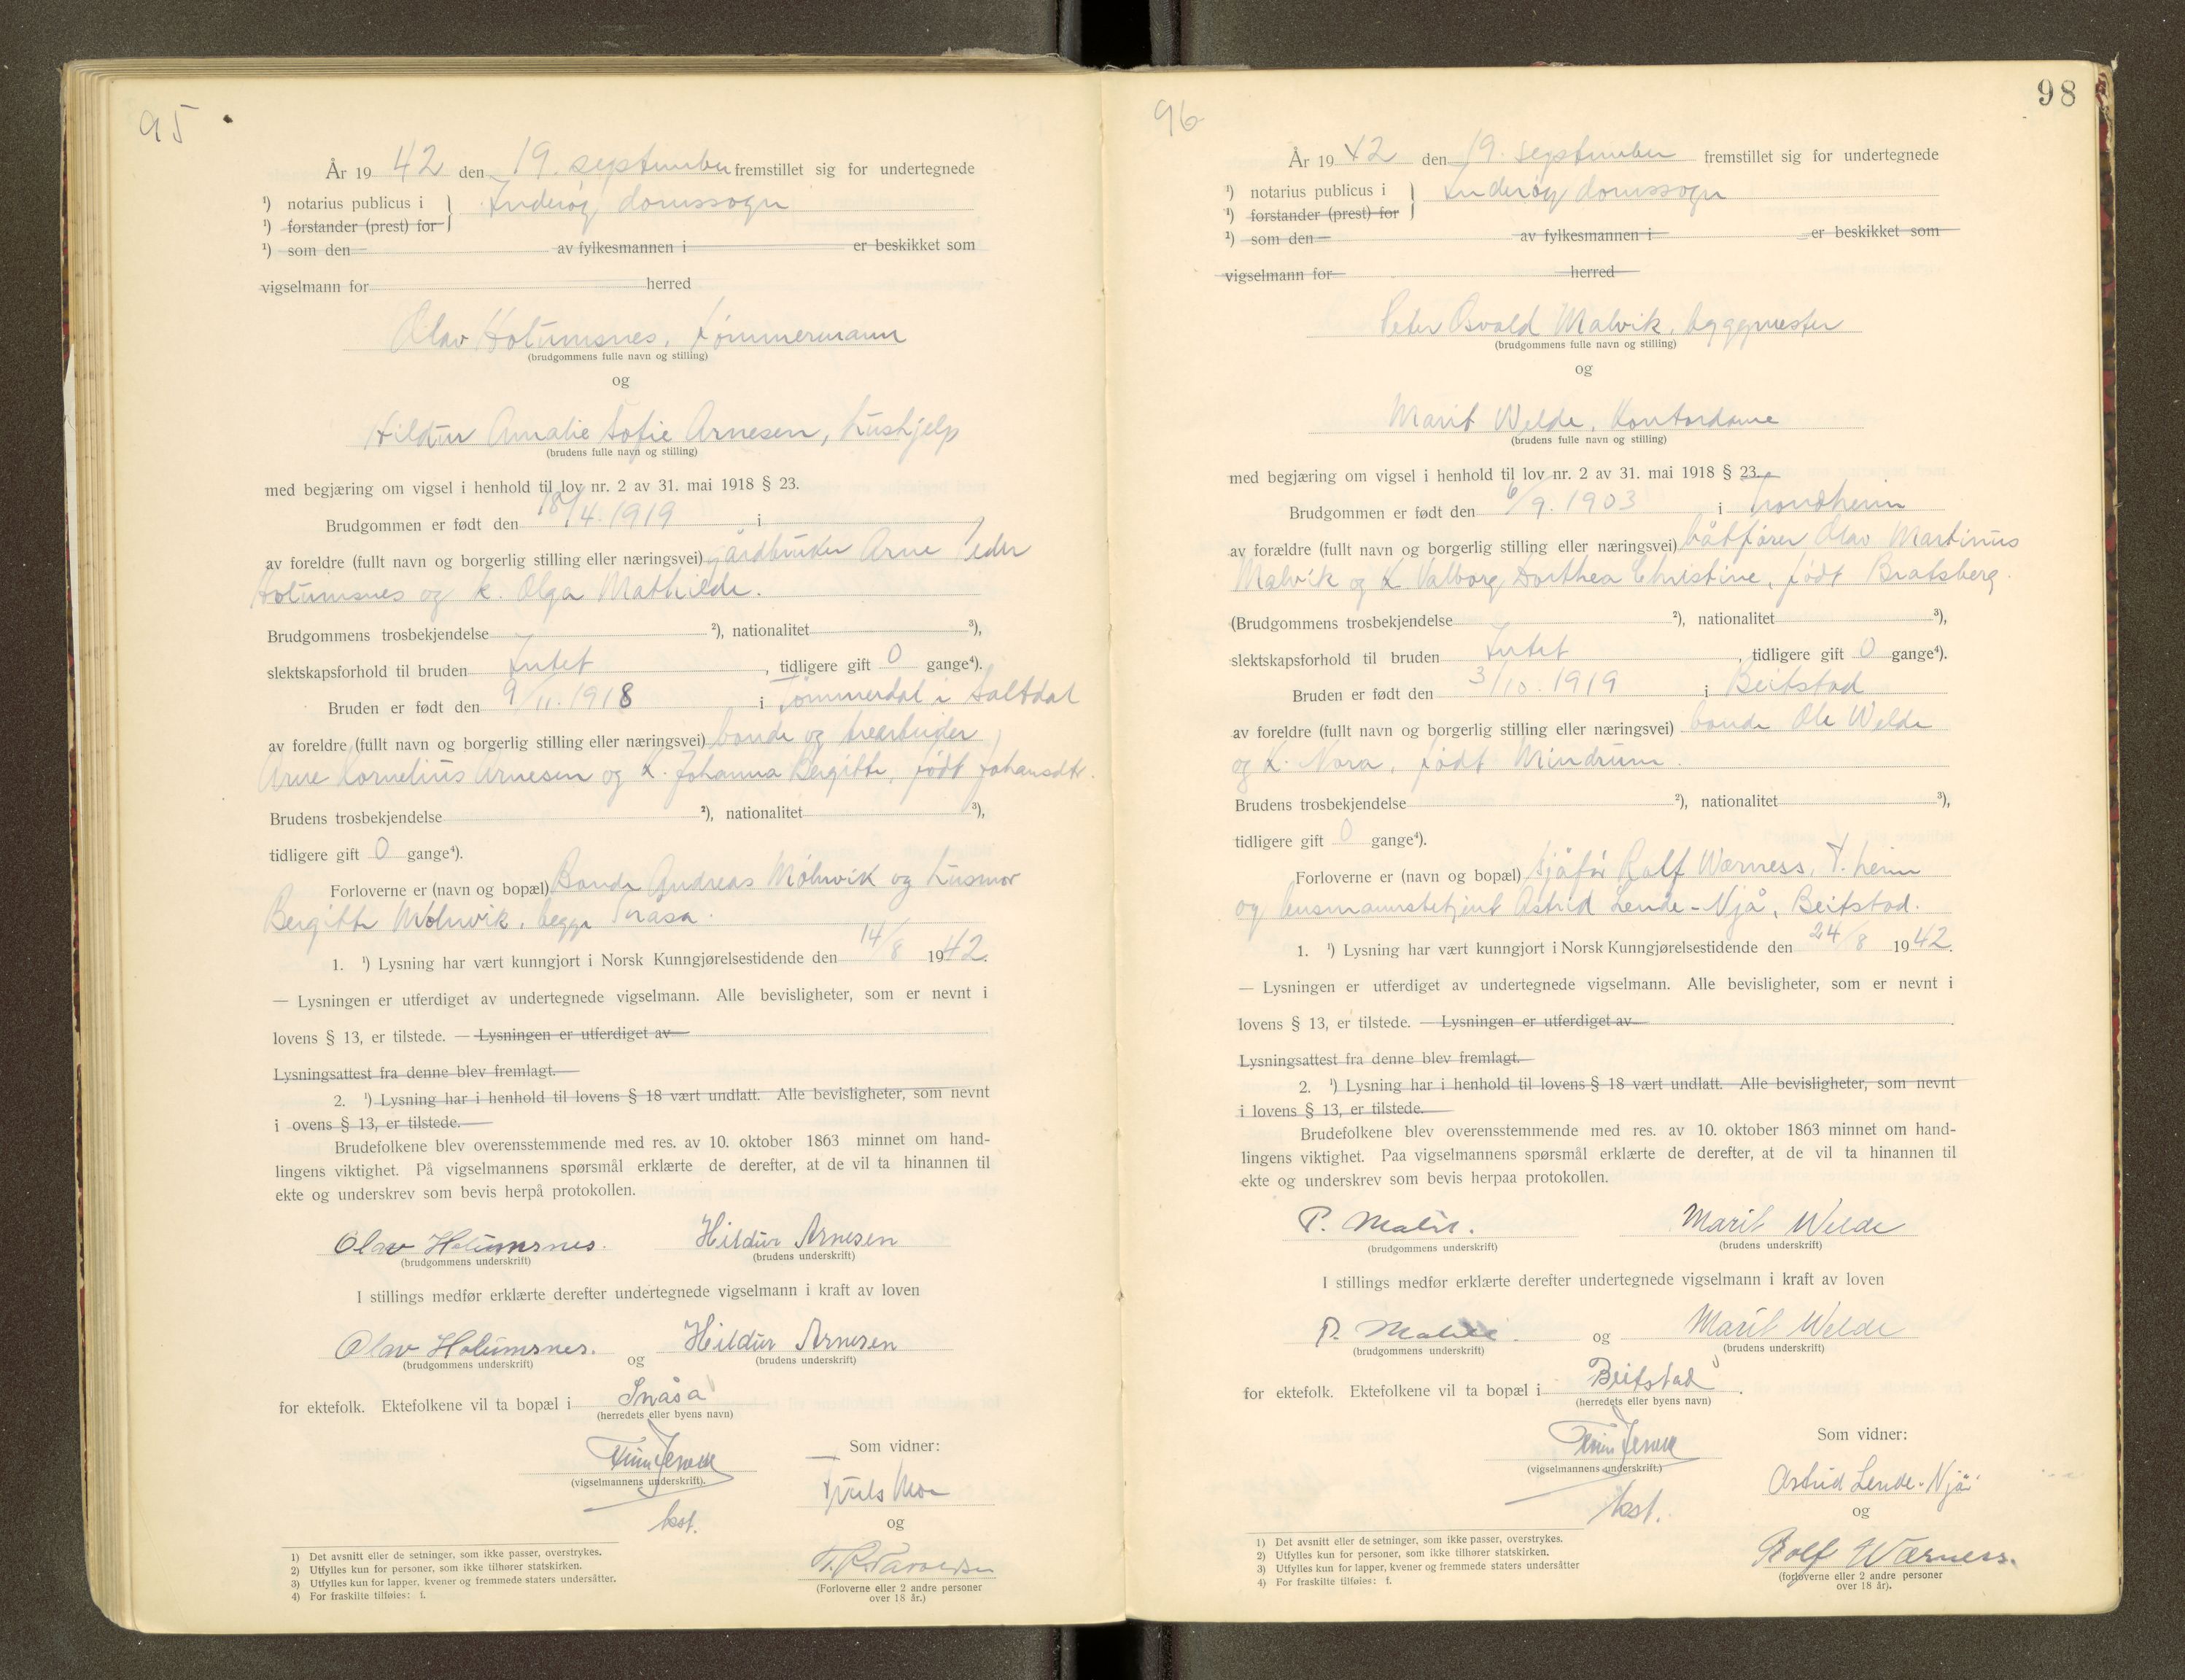 95
År 19 42 den 19. september fremstillet sig for undertegnede
¹) notarius publicus i Inderøy domssogn
¹) forstander (prest) for
¹) som den av fylkesmannen i er beskikket som
vigselmann for herred
Olav Holumsnes, tømmermann
(brudgommens fulle navn og stilling)
og
Hildur Amalie Sofie Arnesen, hushjelp
(brudens fulle navn og stilling)
med begjæring om vigsel i henhold til lov nr. 2 av 31. mai 1918 § 23.
Brudgommen er født den 18/4. 1919 i
av foreldre (fullt navn og borgerlig stilling eller næringsvei) gårdbruker Arne Peder
Holumsnes og k. Olga Mathilde.
Brudgommens trosbekjendelse ²), nationalitet ³),
slektskapsforhold til bruden Intet, tidligere gift 0 gange⁴).
Bruden er født den 9/11. 1918 i Tømmerdal i Saltdal
av foreldre (fullt navn og borgerlig stilling eller næringsvei) bonde og trearbeider
Arne Kornelius Arnesen og k. Johanna Bergitte, født Johansdtr.
Brudens trosbekjendelse ²), nationalitet ³),
tidligere gift 0 gange⁴).
Forloverne er (navn og bopæl) Bonde Andreas Mølnvik og husmor
Bergitte Mølnvik, begge Snåsa.
1. ¹) Lysning har vært kunngjort i Norsk Kunngjørelsestidende den 14/8 1942.
— Lysningen er utferdiget av undertegnede vigselmann. Alle bevisligheter, som er nevnt i
lovens § 13, er tilstede. — Lysningen er utferdiget av
Lysningsattest fra denne blev fremlagt.
2. ¹) Lysning har i henhold til lovens § 18 vært undlatt. Alle bevisligheter, som nevnt
i ovens § 13, er tilstede.
Brudefolkene blev overensstemmende med res. av 10. oktober 1863 minnet om hand-
lingens viktighet. På vigselmannens spørsmål erklærte de derefter, at de vil ta hinannen til
ekte og underskrev som bevis herpå protokollen.
Olav Holumsnes. Hildur Arnesen
(brudgommens underskrift) (brudens underskrift)
I stillings medfør erklærte derefter undertegnede vigselmann i kraft av loven
Olav Holumsnes. og Hildur Arnesen
(brudgommens underskrift) (brudens underskrift)
for ektefolk. Ektefolkene vil ta bopæl i Snåsa
(herredets eller byens navn)
Som vidner:
(vigselmannens underskrift).
kst.
og
(Forloverne eller 2 andre personer
over 18 år.)
1) Det avsnitt eller de setninger, som ikke passer, overstrykes.
2) Utfylles kun for personer, som ikke tilhører statskirken.
3) Utfylles kun for lapper, kvener og fremmede staters undersåtter.
4) For fraskilte tilføies: f.
96
98
År 19 42 den 19. september fremstillet sig for undertegnede
¹) notarius publicus i Inderøy domssogn
¹) forstander (prest) for
¹) som den av fylkesmannen i er beskikket som
vigselmann for herred
Peter Osvald Malvik, byggmester
(brudgommens fulle navn og stilling)
og
Marit Welde, Kontordame
(brudens fulle navn og stilling)
med begjæring om vigsel i henhold til lov nr. 2 av 31. mai 1918 § 23.
Brudgommen er født den 6/9. 1903 i Trondheim
av forældre (fullt navn og borgerlig stilling eller næringsvei) båtfører Olav Martinus
Malvik og k. Valborg Dorthea Christine, født Bratsberg.
(Brudgommens trosbekjendelse ²), nationalitet ³),
slektskapsforhold til bruden Intet, tidligere gift 0 gange⁴).
Bruden er født den 3/10. 1919 i Beitstad
av foreldre (fullt navn og borgerlig stilling eller næringsvei) bonde Ole Welde
og k. Nora, født Mindrum.
Brudens trosbekjendelse ²), nationalitet ³),
tidligere gift 0 gange⁴).
Forloverne er (navn og bopæl) sjåfør Rolf Wærness, T.heim
og lensmannsbetjent Astrid Lende-Njå, Beitstad.
1. ¹) Lysning har vært kunngjort i Norsk Kunngjørelsestidende den 24/8 1942.
— Lysningen er utferdiget av undertegnede vigselmann. Alle bevisligheter, som er nevnt i
lovens § 13, er tilstede. — Lysningen er utferdiget av
Lysningsattest fra denne blev fremlagt.
2. ¹) Lysning har i henhold til lovens § 18 vært undlatt. Alle bevisligheter, som nevnt
i lovens § 13, er tilstede.
Brudefolkene blev overensstemmende med res. av 10. oktober 1863 minnet om hand-
lingens viktighet. Paa vigselmannens spørsmål erklærte de derefter, at de vil ta hinannen til
ekte og underskrev som bevis herpaa protokollen.
P. Malvik. Marit Welde
(brudgommens underskrift) (brudens underskrift)
I stillings medfør erklærte derefter undertegnede vigselmann i kraft av loven
P. Malvik. og Marit Welde
(brudgommens underskrift) (brudens underskrift)
for ektefolk. Ektefolkene vil ta bopæl i Beitstad.
(herredets eller byens navn)
Som vidner:
(vigselmannens underskrift.)
kst.
Astrid Lende-Njå
og
Rolf Wærness.
(forloverne eller 2 andre personer
over 18 år).
1) Det avsnitt eller de setninger, som ikke passer, overstrykes.
2) Utfylles kun for personer, som ikke tilhører statskirken.
3) Utfylles kun for lapper, kvener og fremmede staters undersåtter
4) For fraskilte tilføies: f.